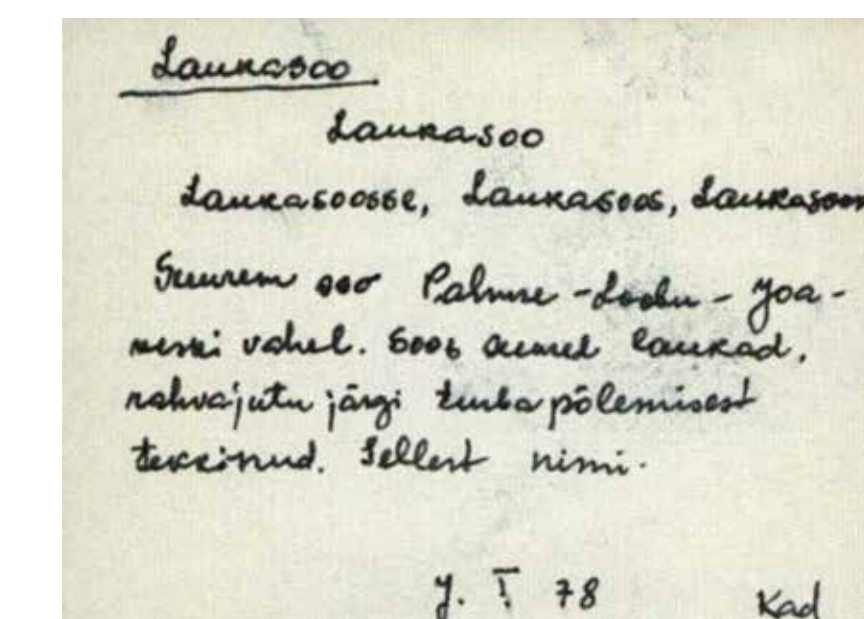 Laukasoo
Laukasoo
Laukasoosse, Laukasoos, Laukasoos
Suurem soo Palmse - Loobu - Joa-
veski vahel. Soos suured laukad,
rahvajutu järgi turba põlemisest
tekkinud. Sellest nimi.
J. I 78 Kad